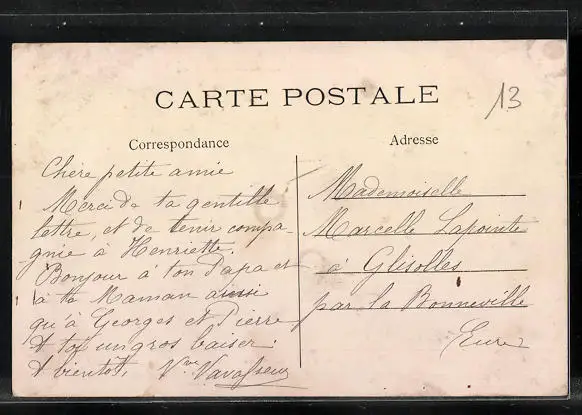 CARTE POSTALE
13
Correspondance
Adresse
Chère petite amie
Merci de ta gentille
lettre, et de tenir compa-
gnie à Henriette.
Bonjour à ton Papa et
à ta Maman aussi
qu'à Georges et Pierre
à toi un gros baiser
à bientôt, Vve Vavasseur
Mademoiselle
Marcelle Lapointe
à Glisolles
par la Bonneville
Eure